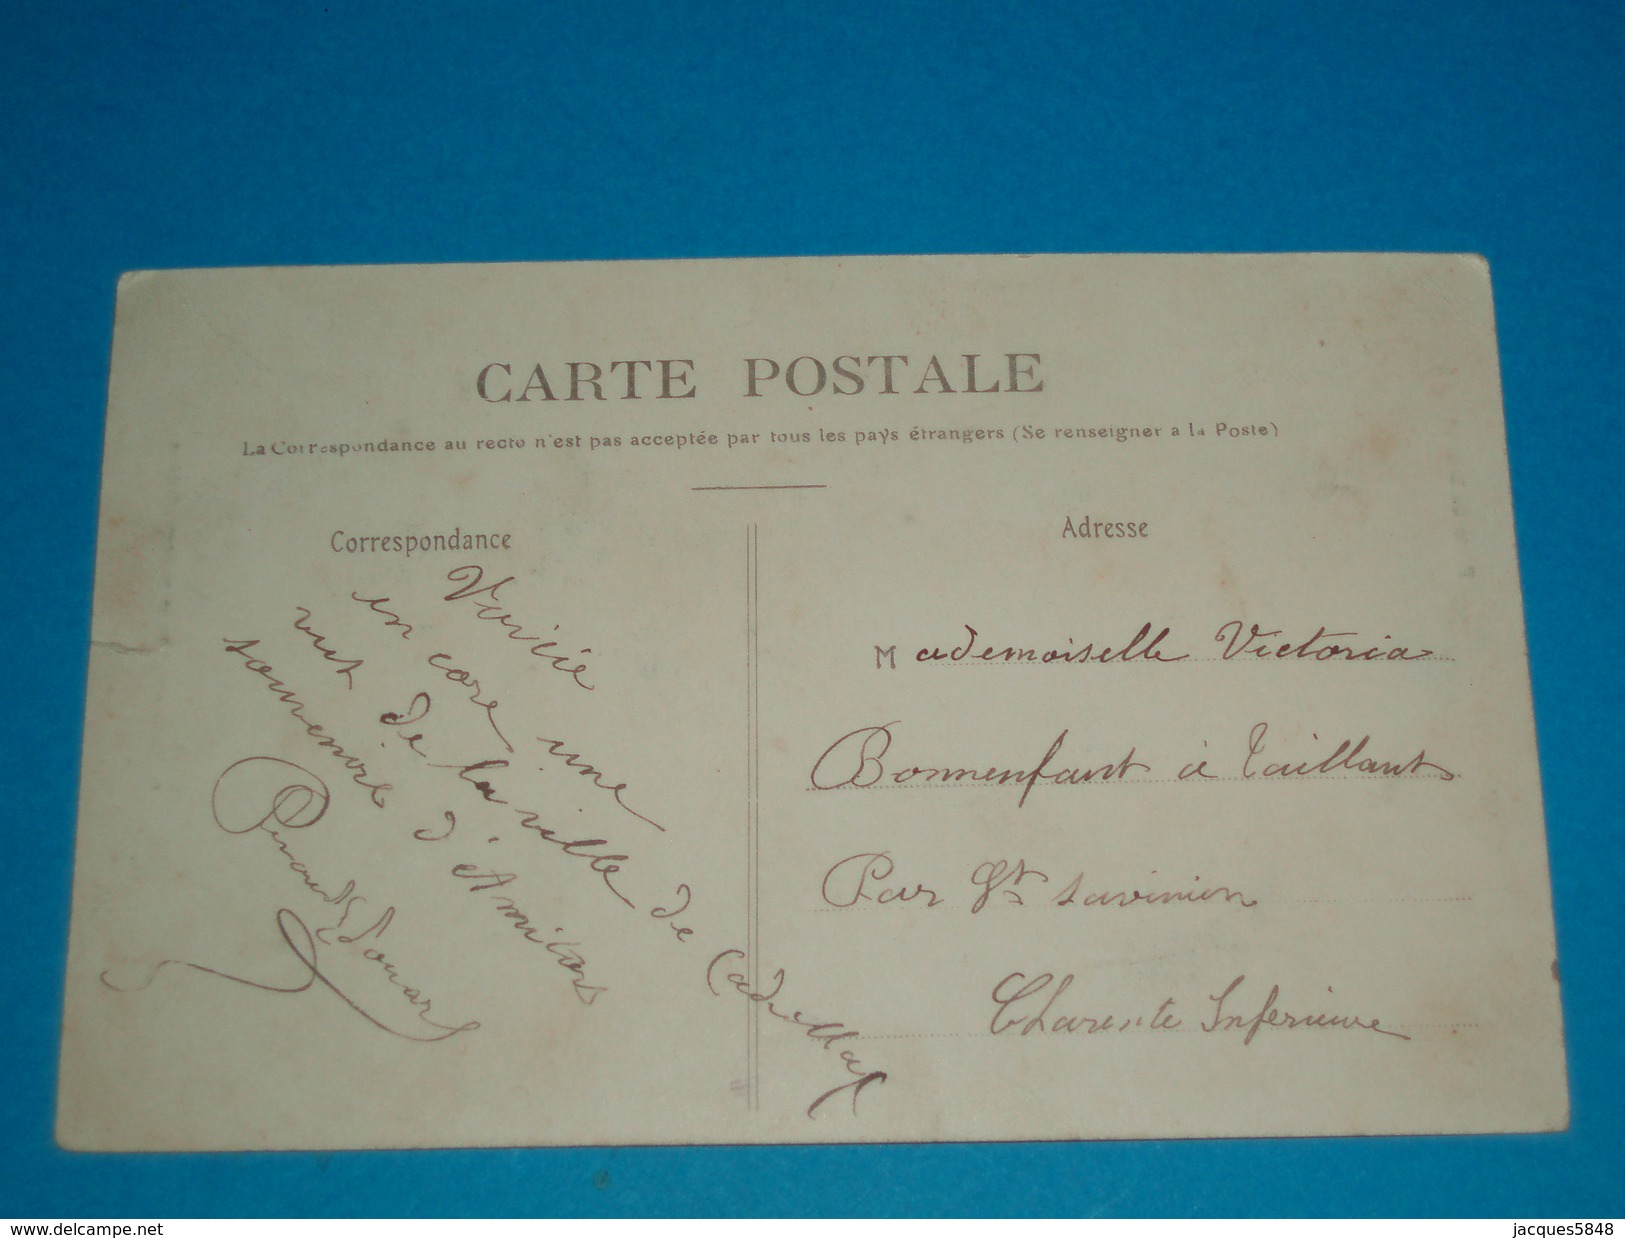 CARTE POSTALE
La Correspondance au recto n'est pas acceptée par tous les pays étrangers (Se renseigner a la Poste)
Correspondance
Voicie
en core une
vut de la ville de Cadillac
souvenire d'Amitors
Edouard
Adresse
Mademoiselle Victoria
Bonnenfant à Taillant
Par St savinien
Charente Inferieure
www.delcampe.net
jacques5848